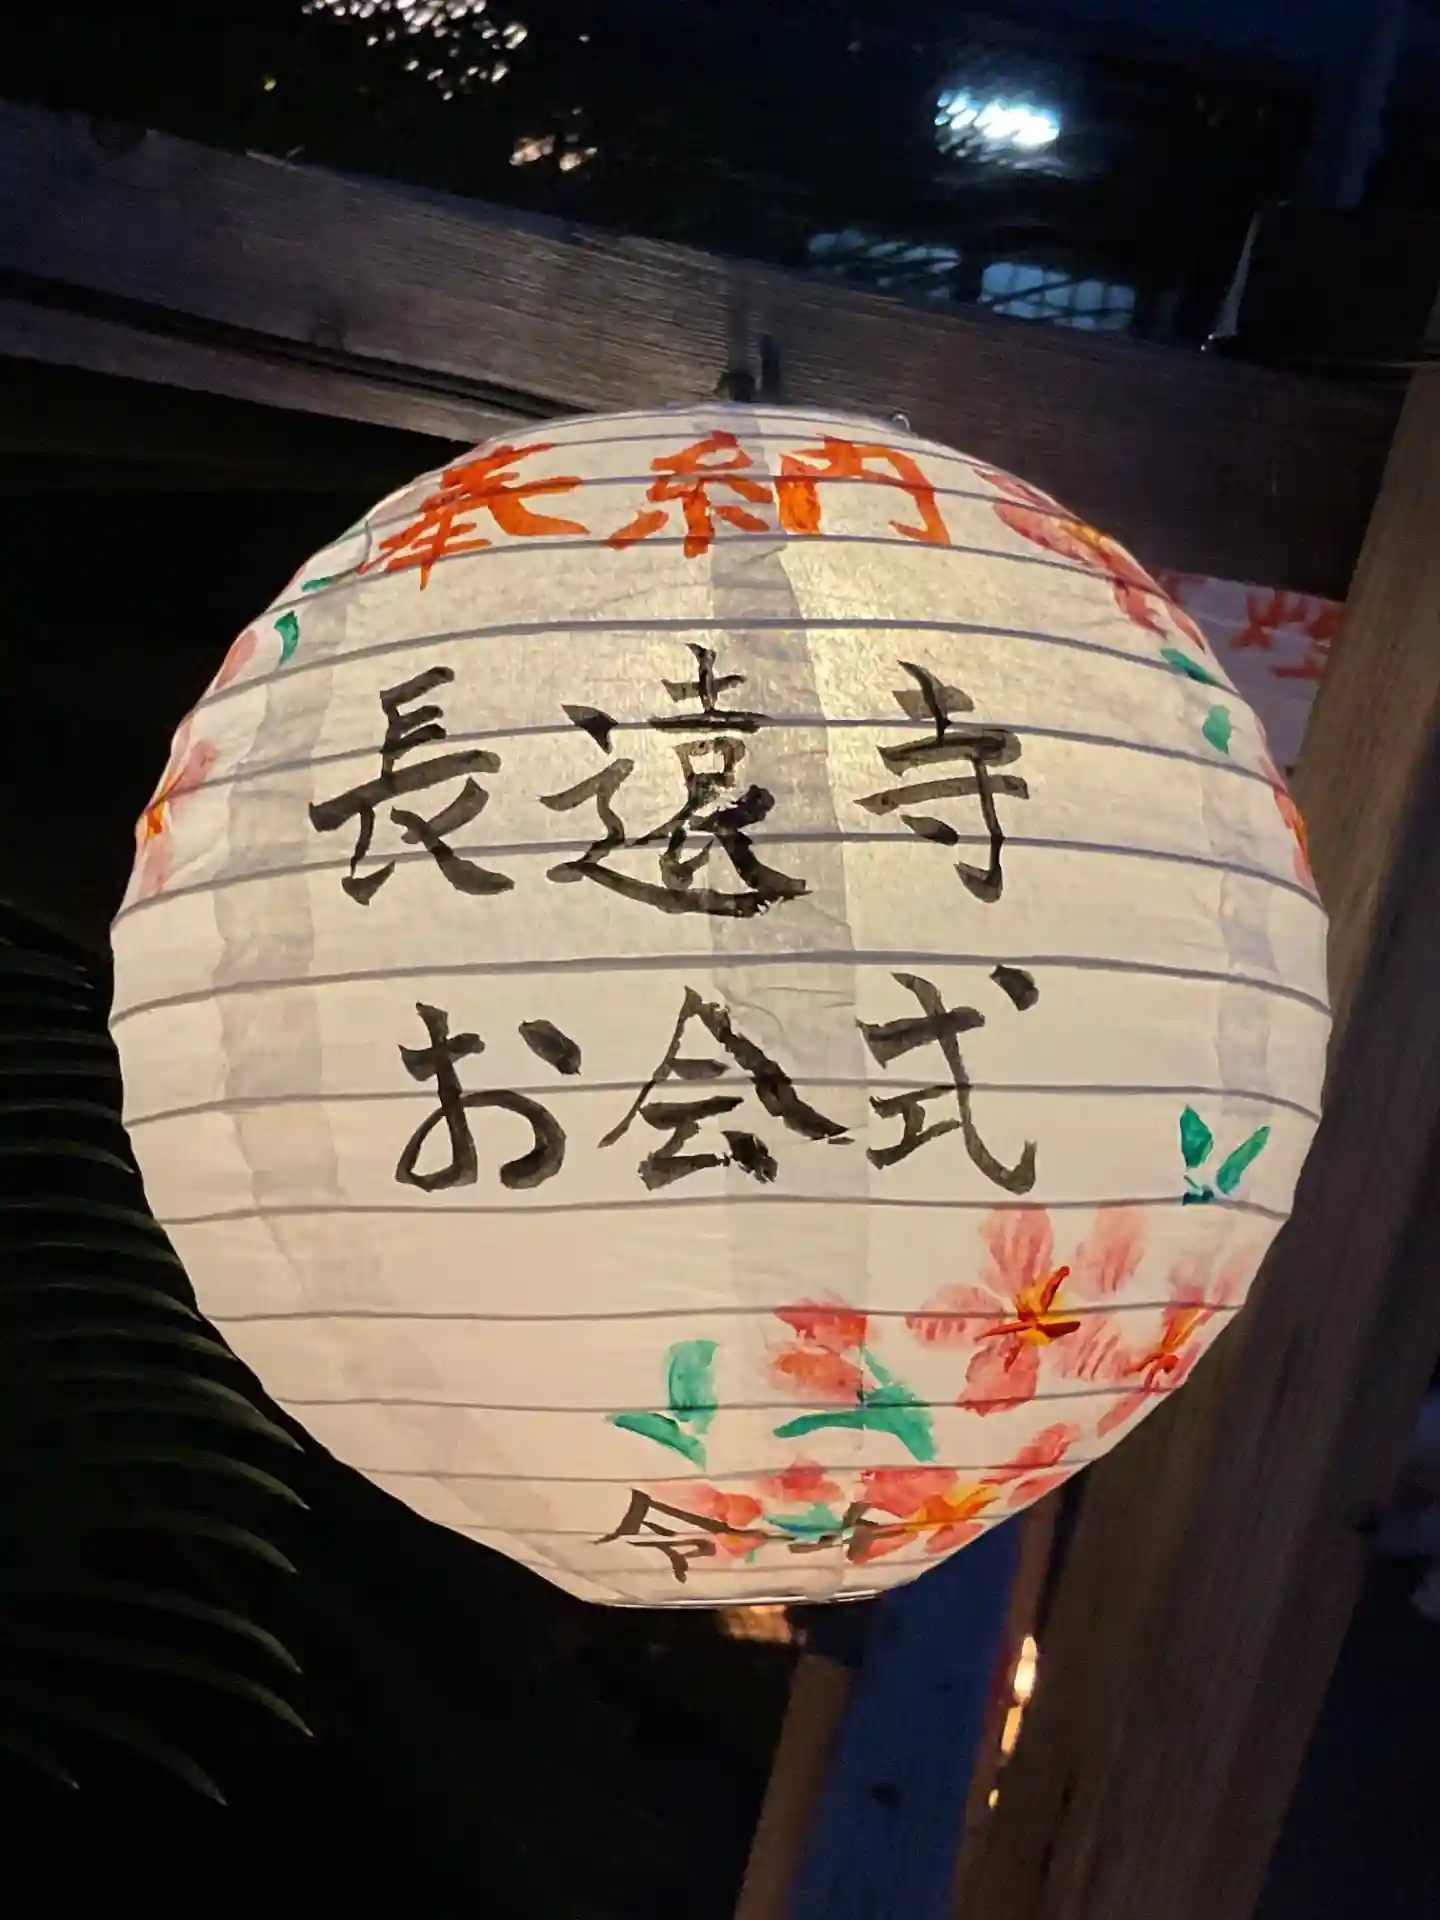 奉納
長遠寺
お会式
令